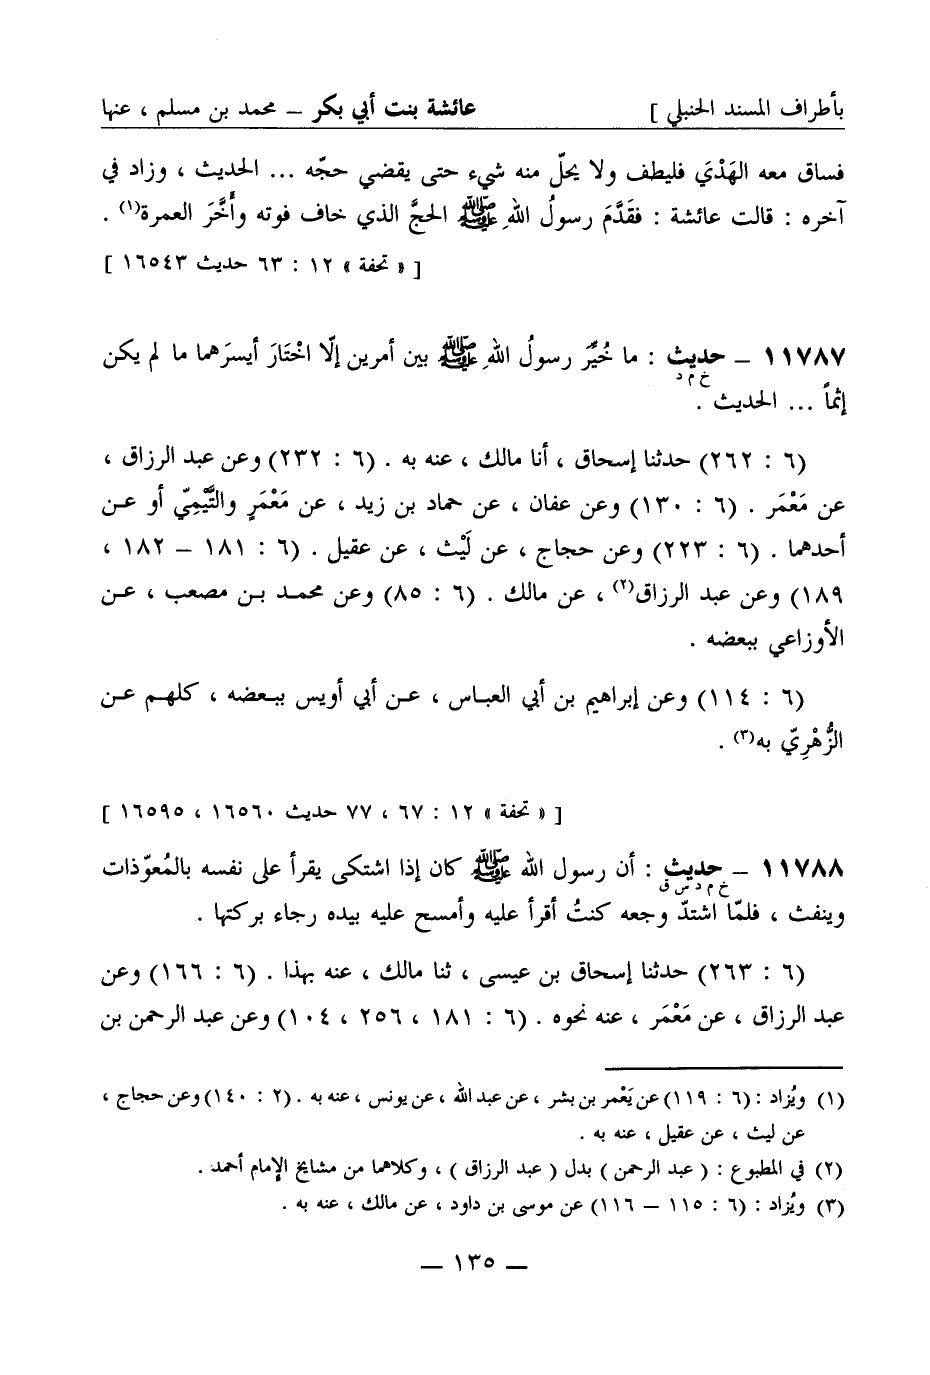 بأطراف المسند الحنبلي ] عائشة بنت أبي بكر ــ محمد بن مسلم ، عنها
فساق معه الهَدْيَ فليطف ولا يحلّ منه شيء حتى يقضي حجّه ... الحديث ، وزاد في
آخره : قالت عائشة : فقَدَّمَ رسولُ اللهِ ﷺ الحجَّ الذي خاف فوته وأَخَّرَ العمرة(١) .
[ « تحفة » ١٢ : ٦٣ حديث ١٦٥٤٣ ]
١١٧٨٧ ــ حديث : ما خُيِّر رسولُ اللهِ ﷺ بين أمرين إلّا اخْتَارَ أيسرَهما ما لم يكن
خ م د
إثماً ... الحديث .
(٦ : ٢٦٢) حدثنا إسحاق ، أنا مالك ، عنه به . (٦ : ٢٣٢) وعن عبد الرزاق ،
عن مَعْمَر . (٦ : ١٣٠) وعن عفان ، عن حماد بن زيد ، عن مَعْمَرٍ والتَّيْمِيّ أو عن
أحدهما . (٦ : ٢٢٣) وعن حجاج ، عن لَيْث ، عن عقيل . (٦ : ١٨١ ــ ١٨٢ ،
١٨٩) وعن عبد الرزاق(٢) ، عن مالك . (٦ : ٨٥) وعن محمد بن مصعب ، عن
الأوزاعي ببعضه .
(٦ : ١١٤) وعن إبراهيم بن أبي العباس ، عن أبي أويس ببعضه ، كلهم عن
الزُّهْرِيّ به(٣) .
[ « تحفة » ١٢ : ٦٧ ، ٧٧ حديث ١٦٥٦٠ ، ١٦٥٩٥ ]
١١٧٨٨ ــ حديث : أن رسول الله ﷺ كان إذا اشتكى يقرأ على نفسه بالمُعوّذات
خ م د س ق
وينفث ، فلمّا اشتدّ وجعه كنتُ أقرأ عليه وأمسح عليه بيده رجاء بركتها .
(٦ : ٢٦٣) حدثنا إسحاق بن عيسى ، ثنا مالك ، عنه بهذا . (٦ : ١٦٦) وعن
عبد الرزاق ، عن مَعْمَر ، عنه نحوه . (٦ : ١٨١ ، ٢٥٦ ، ١٠٤) وعن عبد الرحمن بن
(١) ويُزاد : (٦ : ١١٩) عن يَعْمر بن بشر ، عن عبد الله ، عن يونس ، عنه به . (٢ : ١٤٠) وعن حجاج ،
عن ليث ، عن عقيل ، عنه به .
(٢) في المطبوع : ( عبد الرحمن ) بدل ( عبد الرزاق ) ، وكلاهما من مشايخ الإمام أحمد .
(٣) ويُزاد : (٦ : ١١٥ ــ ١١٦) عن موسى بن داود ، عن مالك ، عنه به .
ــ ١٣٥ ــ